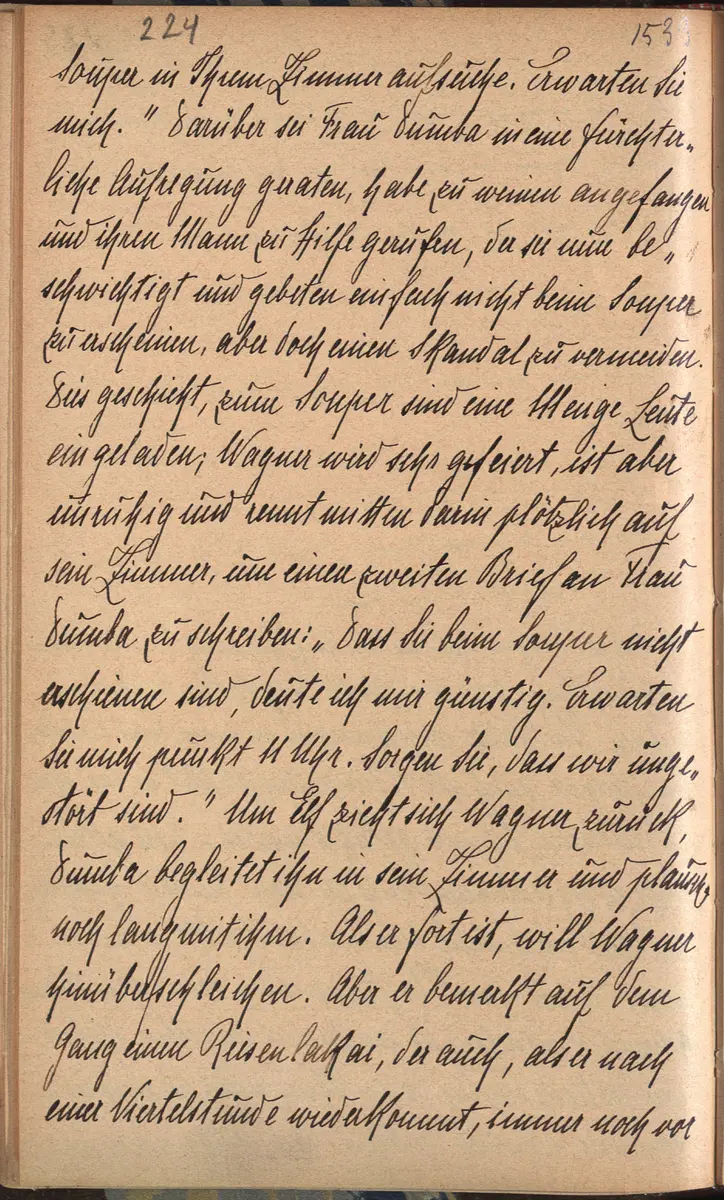 224
153
Souper in Ihrem Zimmer aufsuche. Erwarten Sie
mich." Darüber sei Frau Dumba in eine fürchter„
liche Aufregung geraten, habe zu weinen angefangen
und ihren Mann zu Hilfe gerufen, der sie nun be„
schwichtigt und gebeten einfach nicht beim Souper
zu erscheinen, aber doch einen Skandal zu vermeiden.
Dies geschieht, zum Souper sind eine Menge Leute
eingeladen; Wagner wird sehr gefeiert, ist aber
unruhig und rennt mitten darin plötzlich auf
sein Zimmer, um einen zweiten Brief an Frau
Dumba zu schreiben: „Dass Sie beim Souper nicht
erschienen sind, deute ich mir günstig. Erwarten
Sie mich punkt 11 Uhr. Sorgen Sie, dass wir unge„
stört sind." Um Elf zieht sich Wagner zurück,
Dumba begleitet ihn in sein Zimmer und plauscht
noch lang mit ihm. Als er fort ist, will Wagner
hinüberschleichen. Aber er bemerkt auf dem
Gang einen Riesenlakai, der auch, als er nach
einer Viertelstunde wiederkommt, immer noch vor